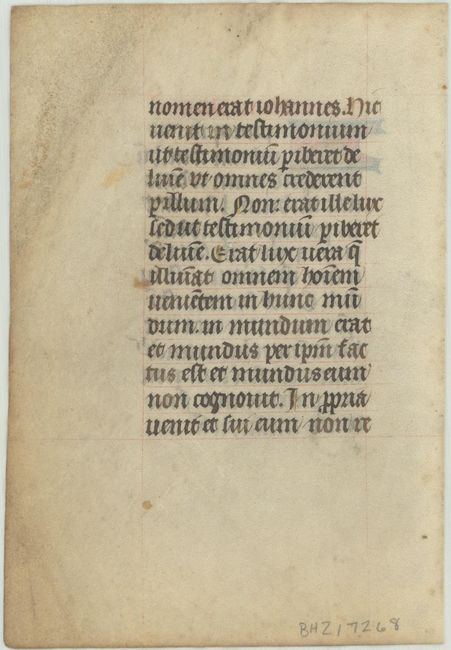 nomen erat iohannes. Hic
uenit in testimonium
ut testimoniū ꝑhiberet de
lumīe ut omnes crederent
ꝑ illum. Non erat ille lux
sed ut testimoniū ꝑhiberet
de lumīe. Erat lux uera q̄
illumīat omnem hoīem
ueniētem in hunc mū
dum. in mundum erat
et mundus per ipm̄ fac
tus est et mundus eum
non cognouit. In ꝓpria
uenit et sui eum non re
BHZ17268